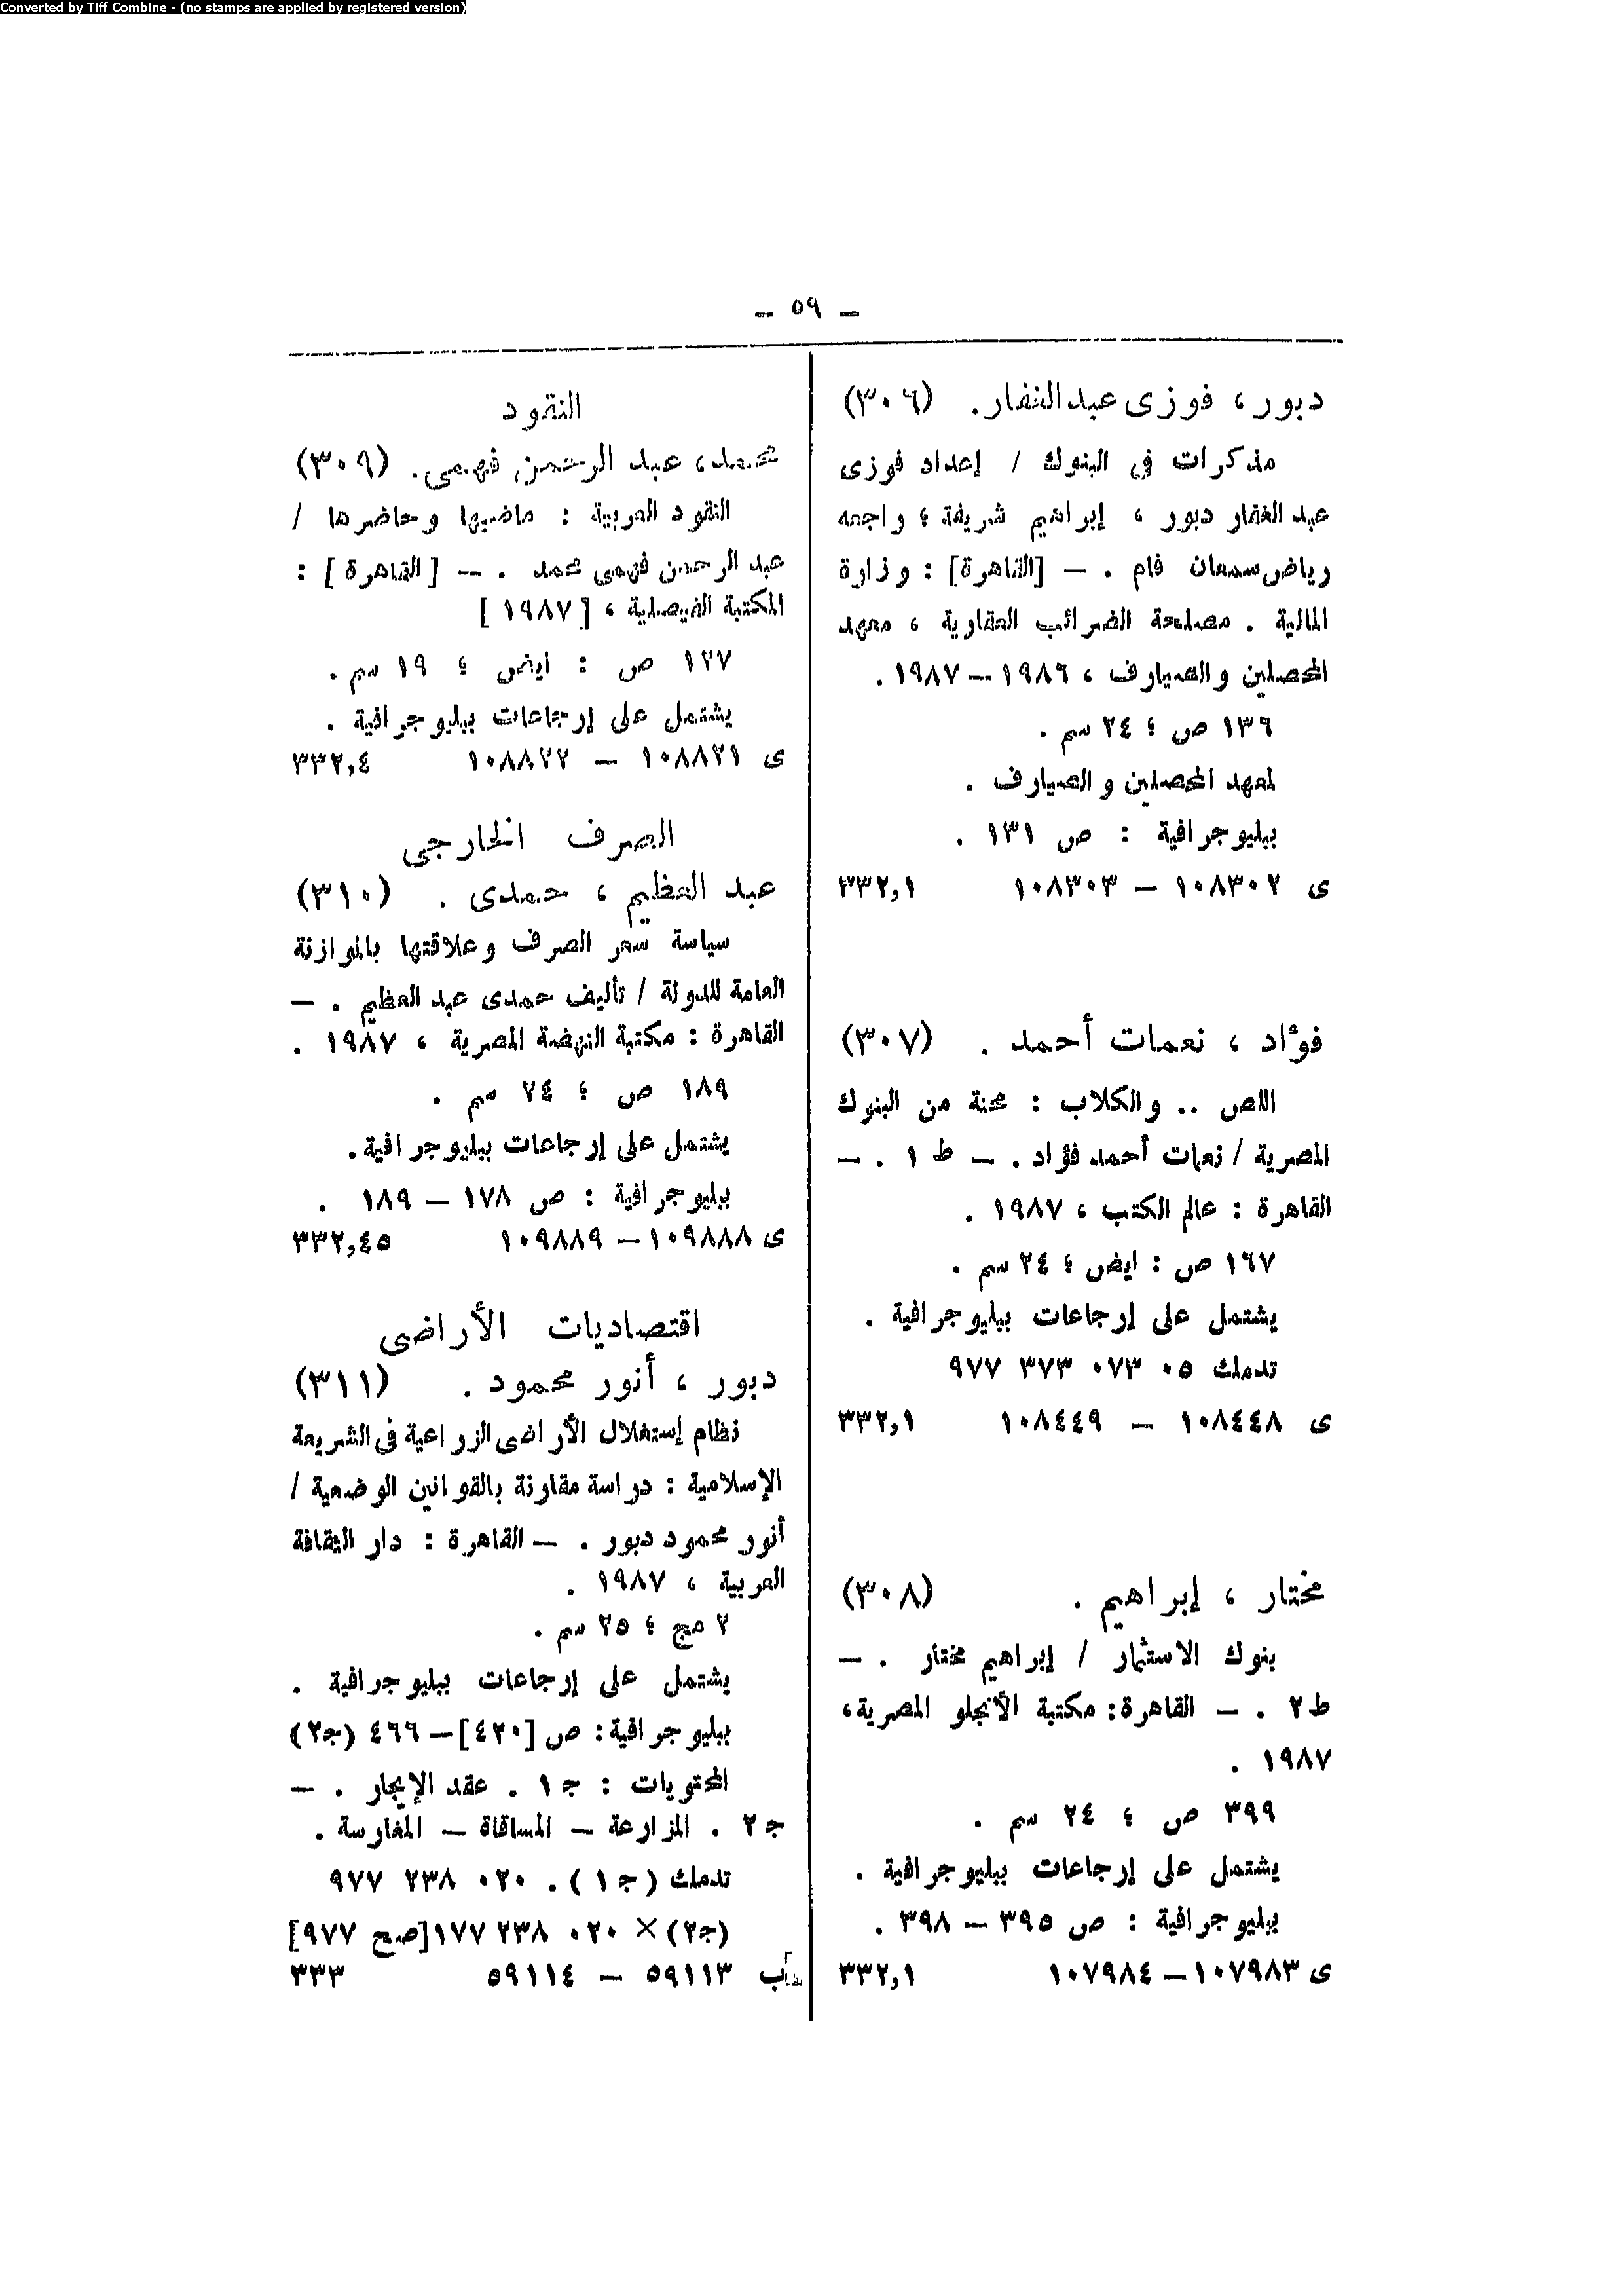 Converted by Tiff Combine - (no stamps are applied by registered version)
— ٥٩ —
دبور ، فوزى عبد الغفار. (٣٠٦)
مذكرات فى البنوك / إعداد فوزى
عبد الغفار دبور ، إبراهيم شريفة ؛ راجعه
رياض سمعان فام . — [القاهرة] : وزارة
المالية . مصلحة الضرائب العقارية ، معهد
المحصلين والصيارف ، ١٩٨٦ — ١٩٨٧ .
١٣٦ ص ؛ ٢٤ سم .
لمعهد المحصلين والصيارف .
ببليوجرافية : ص ١٣١ .
ى ١٠٨٣٠٢ — ١٠٨٣٠٣ ٣٣٢,١
فؤاد ، نعمات أحمد . (٣٠٧)
اللص .. والكلاب : محنة من البنوك
المصرية / نعمات أحمد فؤاد . — ط ١ . —
القاهرة : عالم الكتب ، ١٩٨٧ .
١٦٧ ص : ايض ؛ ٢٤ سم .
يشتمل على إرجاعات ببليوجرافية .
تدمك ٠٥ ٠٧٣ ٣٧٣ ٩٧٧
ى ١٠٨٤٤٨ — ١٠٨٤٤٩ ٣٣٢,١
مختار ، إبراهيم . (٣٠٨)
بنوك الاستثمار / إبراهيم مختار . —
ط ٢ . — القاهرة: مكتبة الأنجلو المصرية،
١٩٨٧ .
٣٩٩ ص ؛ ٢٤ سم .
يشتمل على إرجاعات ببليوجرافية .
ببليوجرافية : ص ٣٩٥ — ٣٩٨ .
ى ١٠٧٩٨٣ — ١٠٧٩٨٤ ٣٣٢,١
النقود
محمد، عبد الرحمن فهمى. (٣٠٩)
النقود العربية : ماضيها وحاضرها /
عبد الرحمن فهمى محمد . — [القاهرة] :
المكتبة الفيصلية ، [١٩٨٧]
١٢٧ ص : ايض ؛ ١٩ سم .
يشتمل على إرجاعات ببليوجرافية .
ى ١٠٨٨٢١ — ١٠٨٨٢٢ ٣٣٢,٤
الصرف الخارجى
عبد العظيم ، حمدى . (٣١٠)
سياسة سعر الصرف وعلاقتها بالموازنة
العامة للدولة / تأليف حمدى عبد العظيم . —
القاهرة : مكتبة النهضة المصرية ، ١٩٨٧ .
١٨٩ ص ؛ ٢٤ سم .
يشتمل على إرجاعات ببليوجرافية.
ببليوجرافية : ص ١٧٨ — ١٨٩ .
ى ١٠٩٨٨٨ — ١٠٩٨٨٩ ٣٣٢,٤٥
اقتصاديات الأراضى
دبور ، أنور محمود . (٣١١)
نظام إستغلال الأراضى الزراعية فى الشريعة
الإسلامية : دراسة مقارنة بالقوانين الوضعية /
أنور محمود دبور . — القاهرة : دار الثقافة
العربية ، ١٩٨٧ .
٢ مج ؛ ٢٥ سم .
يشتمل على إرجاعات ببليوجرافية .
ببليوجرافية : ص [٤٢٠] — ٤٦٦ (جـ٢)
المحتويات : جـ ١ . عقد الإيجار . —
جـ ٢ . المزارعة — المساقاة — المغارسة .
تدمك (جـ ١) . ٠٢٠ ٢٣٨ ٩٧٧
(جـ٢) × ٠٢٠ ٢٣٨ ١٧٧ [صح ٩٧٧]
ب ٥٩١١٣ — ٥٩١١٤ ٣٣٣